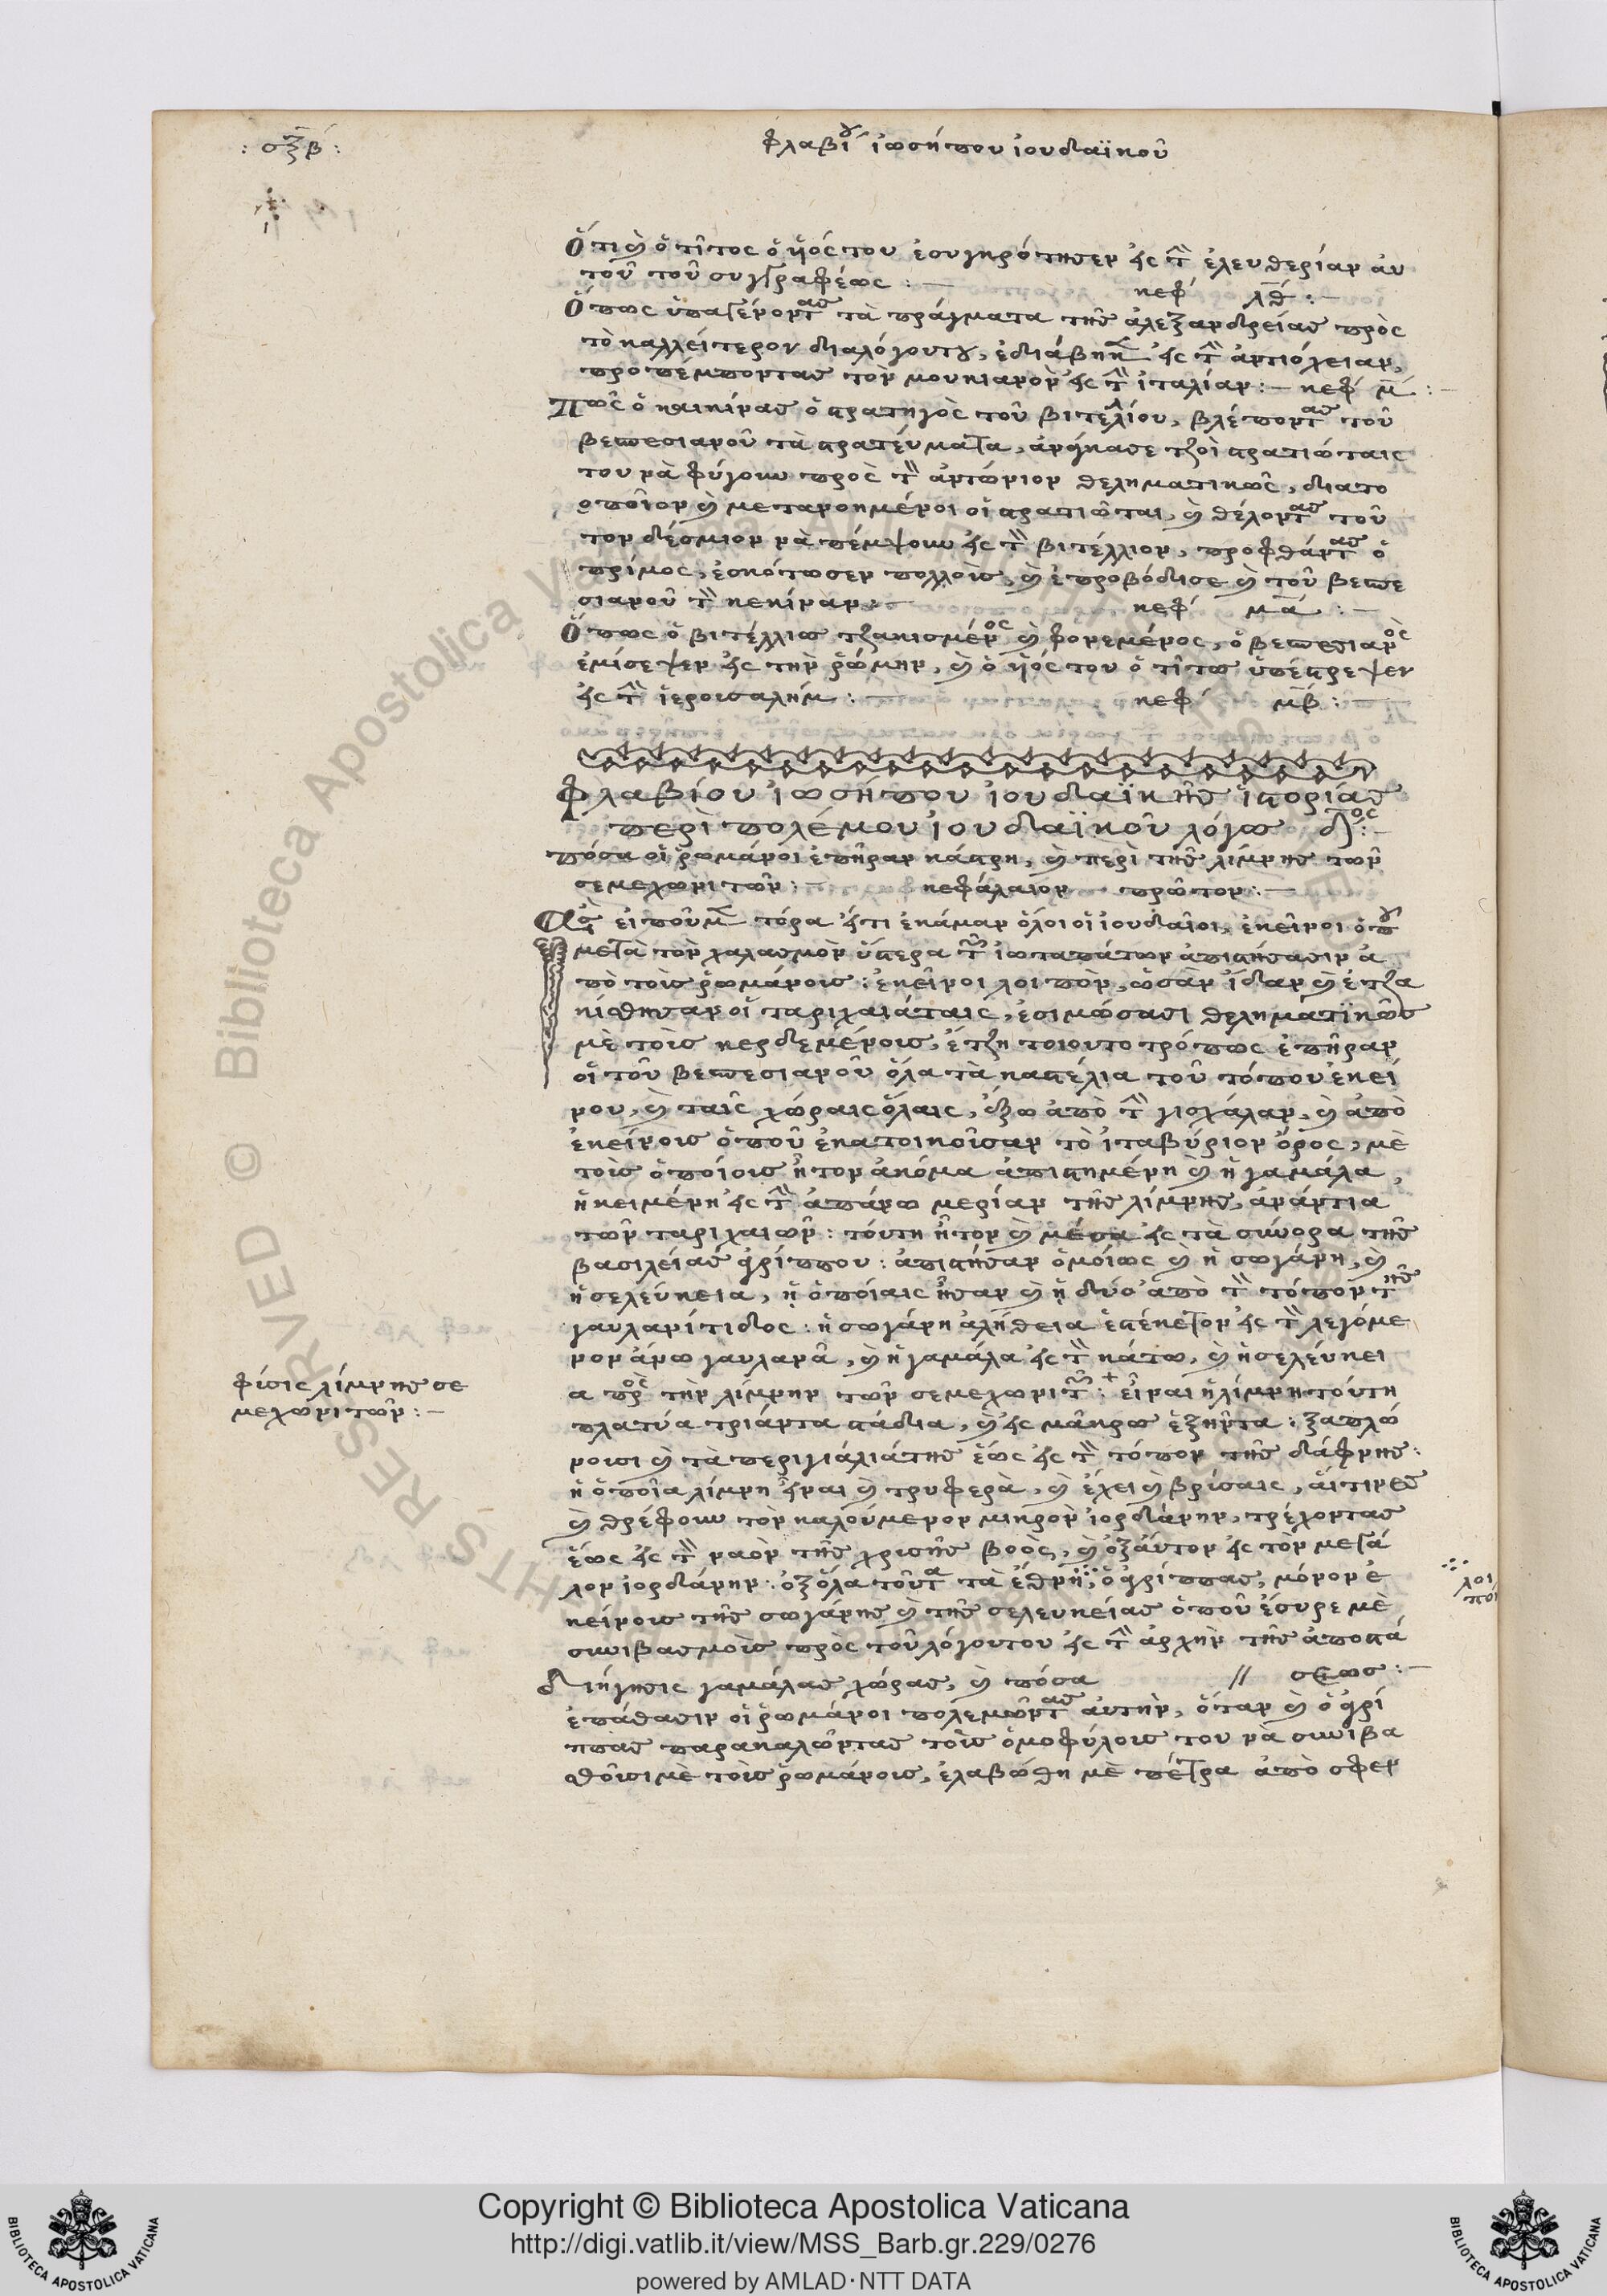 : σξβ :
φλαβίου ἰωσήπου ἰουδαϊκοῦ
Ὅτι καὶ ὁ τῖτος ὁ ὑιός του ἐσυνκρότησεν εἰς τὴν ἐλευθερίαν αὐ
τοῦ τοῦ συγγραφέως : — κεφ λθ : —
Ὅπως ὑπαγένοντας τὰ πράγματα τῆς ἀλεξανδρείας πρὸς
τὸ καλλείτερον διαλόγουτου, ἐδιάβηκεν εἰς τὴν ἀντιόχειαν,
προπέμποντας τὸν μουκιανὸν εἰς τὴν ἰταλίαν : — κεφ μ : —
Πῶς ὁ καικίνας ὁ στρατηγὸς τοῦ βιτελίου, βλέποντας τοῦ
βεσπεσιανοῦ τὰ στρατεύματα, ἀνήκασε τζοὶ στρατιώταις
του νὰ φύγουν πρὸς τὸν ἀντώνιον θεληματικῶς, διατο
οποῖον καὶ μετανοημένοι οἱ στρατιῶται, καὶ θέλοντας τοῦ
τον δέσμιον νὰ πέμψουν εἰς τὸν βιτέλλιον, προφθάντας ὁ
πρίμος, ἐσκότωσεν πολλοὺς, καὶ ἐπροβόδισε καὶ τοῦ βεσπε
σιανοῦ τὸν κεκίναν : — κεφ μα : —
Ὅπως ὁ βιτέλλιος τζακισμένος καὶ φονεμένος, ὁ βεσπεσιανὸς
ἐμίσεψεν εἰς τὴν ῥώμην, καὶ ὁ ὑιός του ὁ τῖτος ὑπέστρεψεν
εἰς τὴν ἱερουσαλήμ : — κεφ μβ : —
Φλαβίου ἰωσήπου ἰουδαϊκῆς ἱστορίας
περὶ πολέμου ἰουδαϊκοῦ λόγος δος : —
πόσα οἱ ῥωμάνοι ἐπῆραν κάστρη, καὶ περὶ τῆς λίμνης τῶν
σεμεχωνιτῶν : — κεφάλαιον πρῶτον : —
εἰποῦμεν τόρα ὅτι ἐκάμαν ὅλοι οἱ ἰουδαῖοι, ἐκεῖνοι ὁποῦ
μετὰ τὸν χαλασμὸν ὕστερα τῶν ἰωταπάτων ἀπιστήσασιν ἀ
πὸ τοὺς ῥωμάνους : ἐκεῖνοι λοιπὸν, ὡσὰν ἴδαν καὶ ἐτζα
κίσθησαν οἱ ταριχαιάταις, ἐσιμώσασι θεληματϊκῶς
μὲ τοὺς κερδεμένους, ἔτζη τοιουτοτρόπως ἐπῆραν
οἱ τοῦ βεσπεσιανοῦ ὅλα τὰ καστέλια τοῦ τόπου ἐκεί
νου, καὶ ταῖς χώραις ὅλαις, ἔξω ἀπὸ τὴν γισχάλαν, καὶ ἀπὸ
ἐκείνους ὁποῦ ἐκατοικοῦσαν τὸ ἰταβύριον ὄρος, μὲ
τοὺς ὁποίους ἦτον ἀκόμα ἀπιστημένη καὶ ἡ γαμάλα,
ἡ κειμένη εἰς τὴν ἀπάνω μερίαν τῆς λίμνης, ἀνάντια
τῶν ταριχαιῶν : τούτη ἦτον καὶ μέσα εἰς τὰ σύνορα τῆς
βασιλείας ἀγρίππου : ἀπιστήσαν ὁμοίως καὶ ἡ σωγάνη, καὶ
ἡ σελεύκεια, ἡ ὁποίαις ἦσαν καὶ ἡ δύο ἀπὸ τὸν τόπον τῆς
γαυλανίτιδος : ἡ σωγάνη ἀλήθεια ἐστέκετον εἰς τὸν λεγόμε
νον ἄνω γαυλανᾶ, καὶ ἡ γαμάλα εἰς τὸν κάτω, καὶ ἡ σελεύκει
α πρὸς τὴν λίμνην τῶν σεμεχωνιτῶν : + εἶναι ἡ λίμνη τούτη
πλατύα τριάντα στάδια, καὶ εἰς μᾶκρος ἑξῆντα : ξαπλώ
νουσι καὶ τὰ περιγιάλιάτης ἕως εἰς τὸν τόπον τῆς δάφνης :
ἡ ὁποῖα λίμνη εἶναι καὶ τρυφερὰ, καὶ ἔχει καὶ βρύσαις, αἵτινες
καὶ θρέφουν τὸν καλούμενον μικρὸν ἰορδάνην, τρέχοντας
ἕως εἰς τὸν ναὸν τῆς χρισῆς βοὸς, καὶ ὀξαύτον εἰς τὸν μεγά
λον ἰορδάνην : ὀξ ὅλα τοῦτα τὰ ἔθνη ὁ ἀγρίππας, μόνον ἐ
κείνους τῆς σωγάνης καὶ τῆς σελευκείας ὁποῦ ἔσυρε μὲ
συνιβασμοὺς πρὸς τοῦ λόγουτου εἰς τὴν ἀρχὴν τῆς ἀποστά
Διήγησις γαμάλας χώρας, καὶ πόσα // σεως : —
ἐπάθασιν οἱ ῥωμάνοι πολεμῶντας αὐτὴν, ὅταν καὶ ὁ ἀγρί
ππας παρακαλῶντας τοὺς ὁμοφύλους του νὰ συνιβα
σθοῦσι μὲ τοὺς ῥωμάνους, ἐλαβώθη μὲ πέτρα ἀπὸ σφεν
φύσις λίμνης σε
μεχωνιτῶν : —
λοι
πόν
Copyright © Biblioteca Apostolica Vaticana
http://digi.vatlib.it/view/MSS_Barb.gr.229/0276
powered by AMLAD·NTT DATA